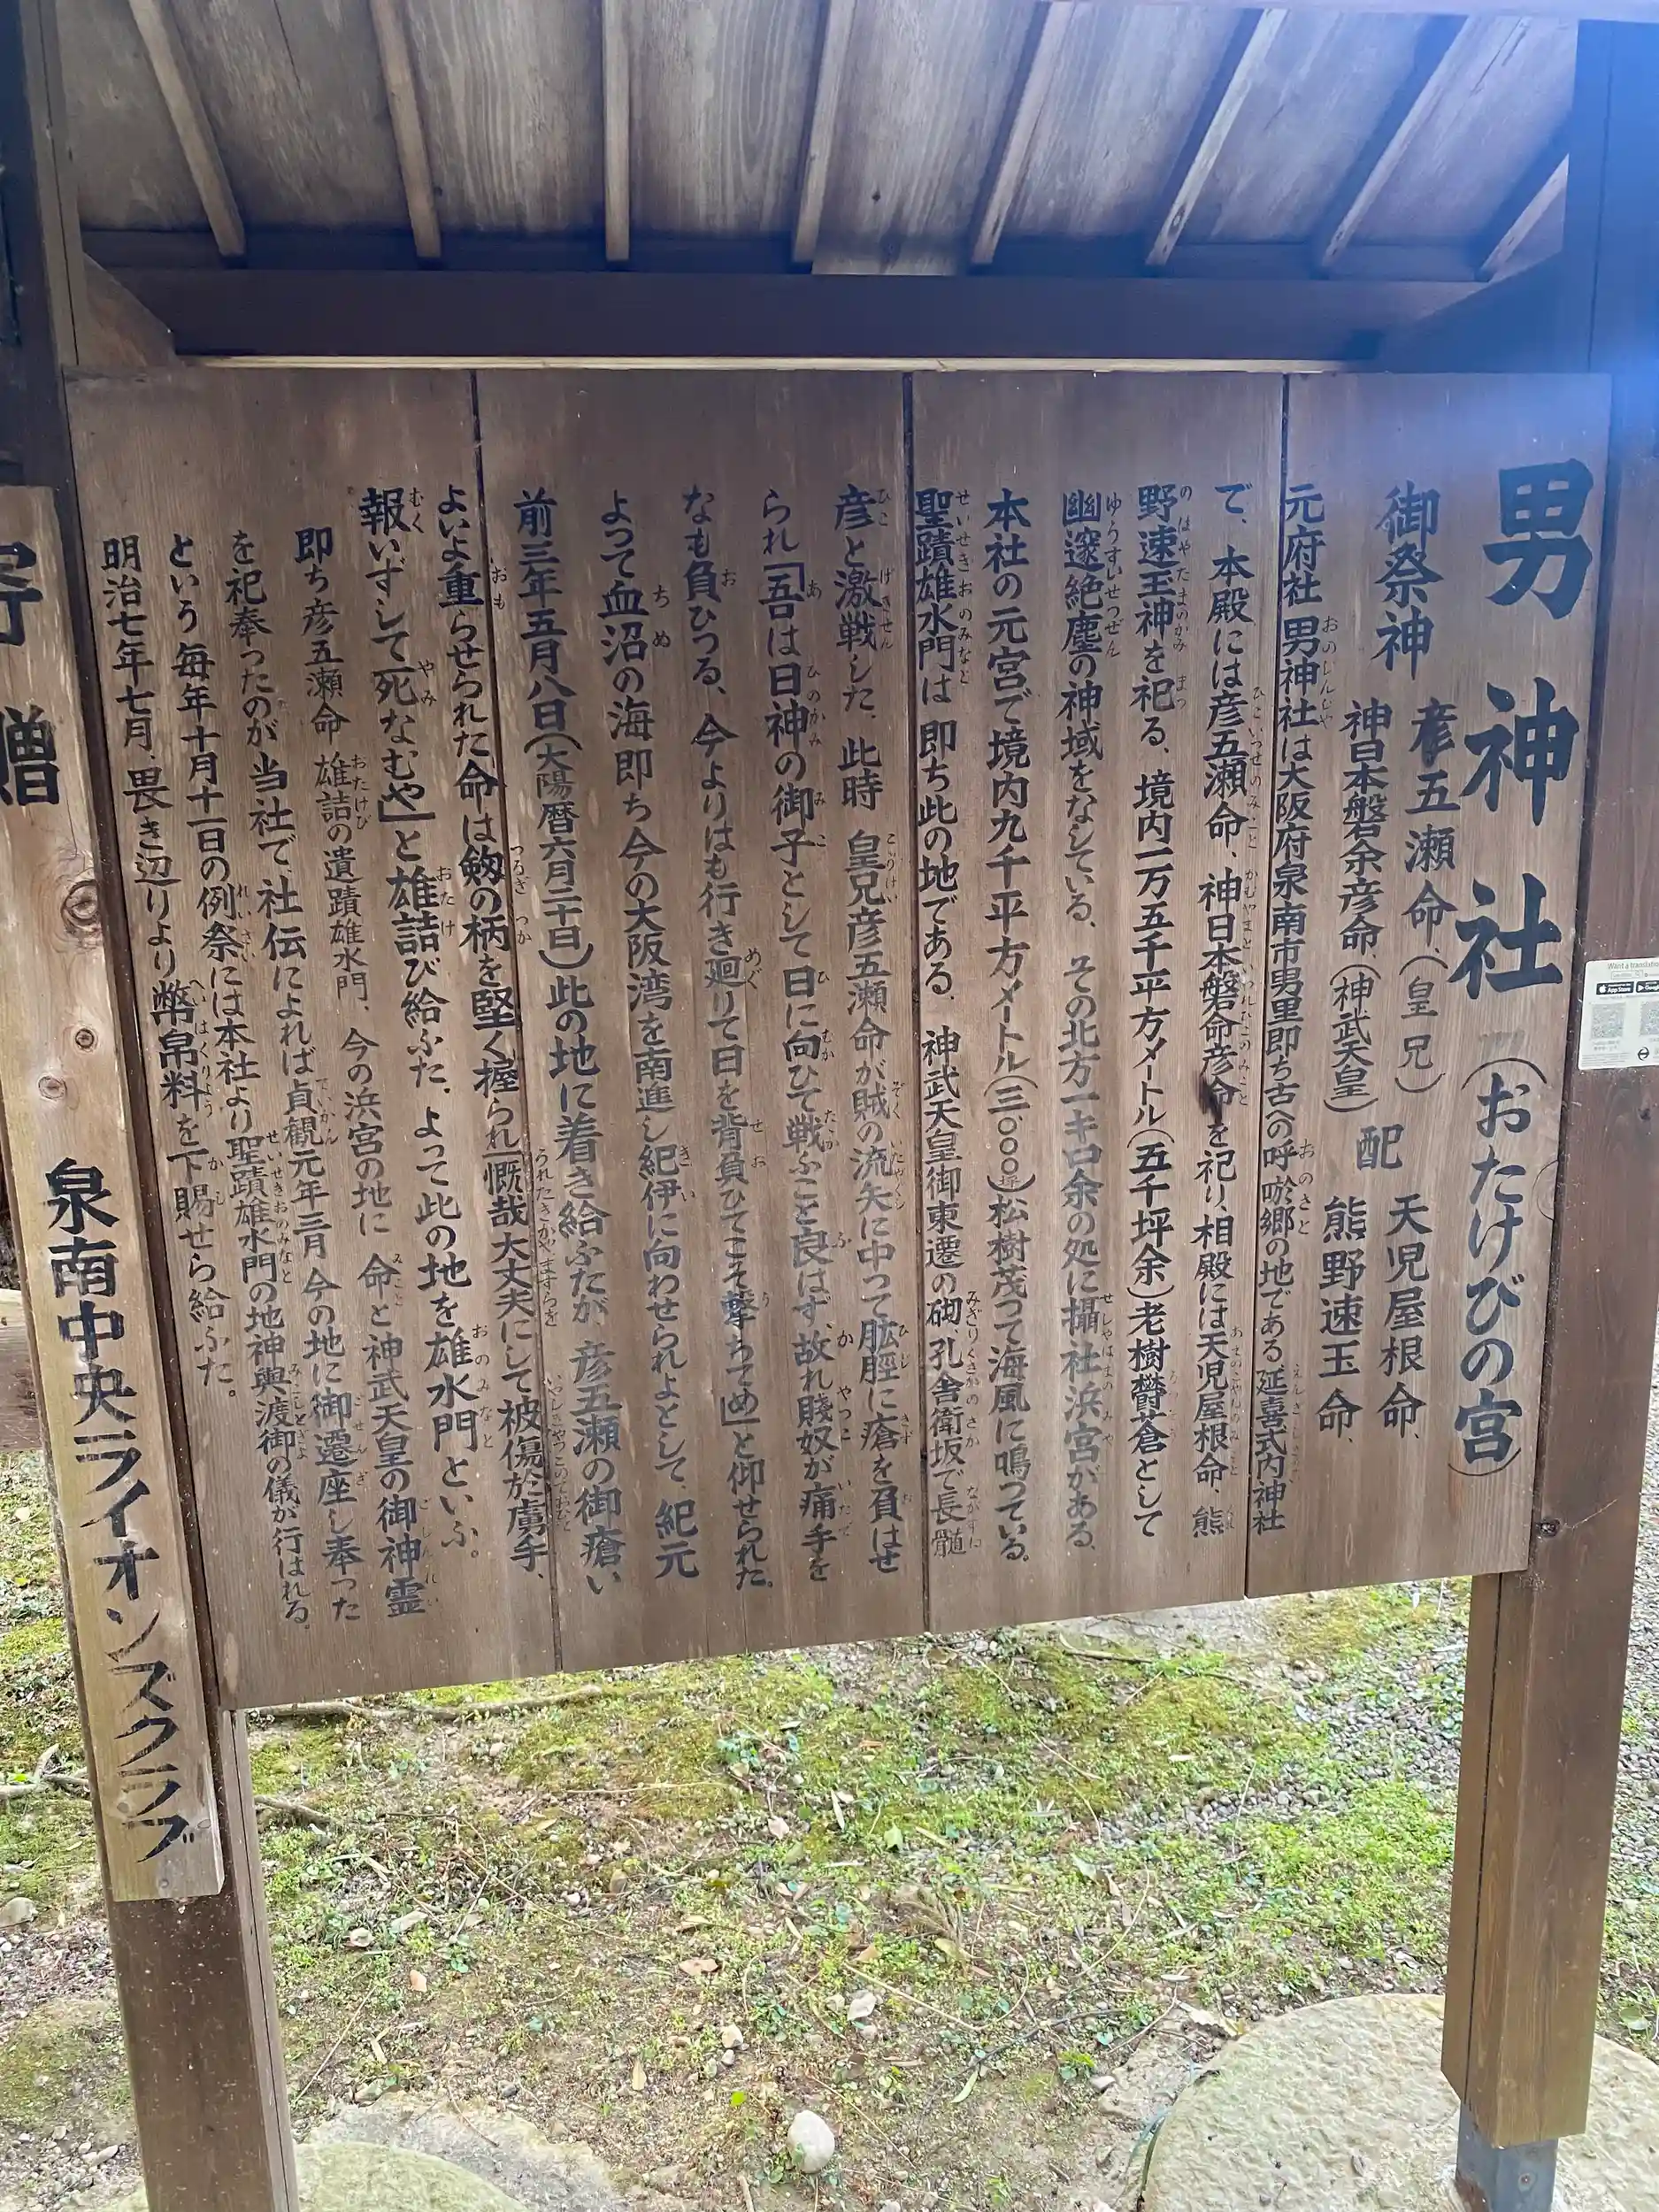 男神社(おたけびの宮)
御祭神 彦五瀬命、(皇兄) 配 天児屋根命、
神日本磐余彦命、(神武天皇) 熊野速玉命、
元府社 男神社は大阪府泉南市男里即ち古への呼唹郷の地である 延喜式内神社
で、本殿には彦五瀬命、神日本磐命彦命を祀り、相殿には天児屋根命、熊
野速玉神を祀る、境内一万五千平方メートル(五千坪余)老樹欝蒼として
幽邃絶塵の神域をなしている、その北方一キロ余の処に攝社浜宮がある、
本社の元宮で境内九千平方メートル(三〇〇〇坪)松樹茂つて海風に鳴つている。
聖蹟雄水門は 即ち此の地である、神武天皇御東遷の砌、孔舎衛坂で長髄
彦と激戦した、此時 皇兄彦五瀬命が賊の流矢に中つて肱脛に瘡を負はせ
られ「吾は日神の御子として日に向ひて戦ふこと良はず、故れ賤奴が痛手を
なも負ひつる、今よりはも行き廻りて日を背負ひてこそ撃ちてめ」と仰せられた。
よつて血沼の海即ち今の大阪湾を南進し紀伊に向わせられよとして、紀元
前三年五月八日(大陽暦六月二十日)此の地に着き給ふたが、彦五瀬の御瘡い
よいよ重らせられた命は剱の柄を堅く握られ「慨哉大丈夫にして被傷於虜手、
報いずして死なむや」と雄詰び給ふた、よつて此の地を雄水門といふ。
即ち彦五瀬命 雄詰の遺蹟雄水門、今の浜宮の地に 命と神武天皇の御神霊
を祀奉つたのが当社で、社伝によれば貞観元年三月 今の地に御遷座し奉つた
という 毎年十月十一日の例祭には本社より聖蹟雄水門の地神輿渡御の儀が行はれる。
明治七年七月、畏き辺りより幣帛料を下賜せら給ふた。
寄贈 泉南中央ライオンズクラブ
Want a translation
App Store